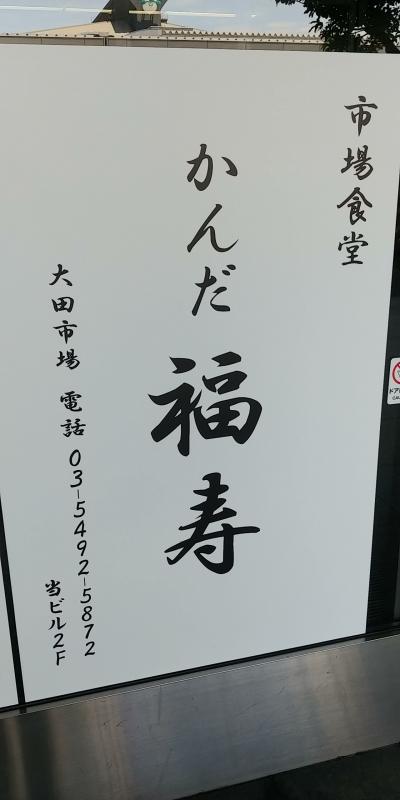 市場食堂
かんだ福寿
大田市場 電話03-5492-5872
当ビル2F